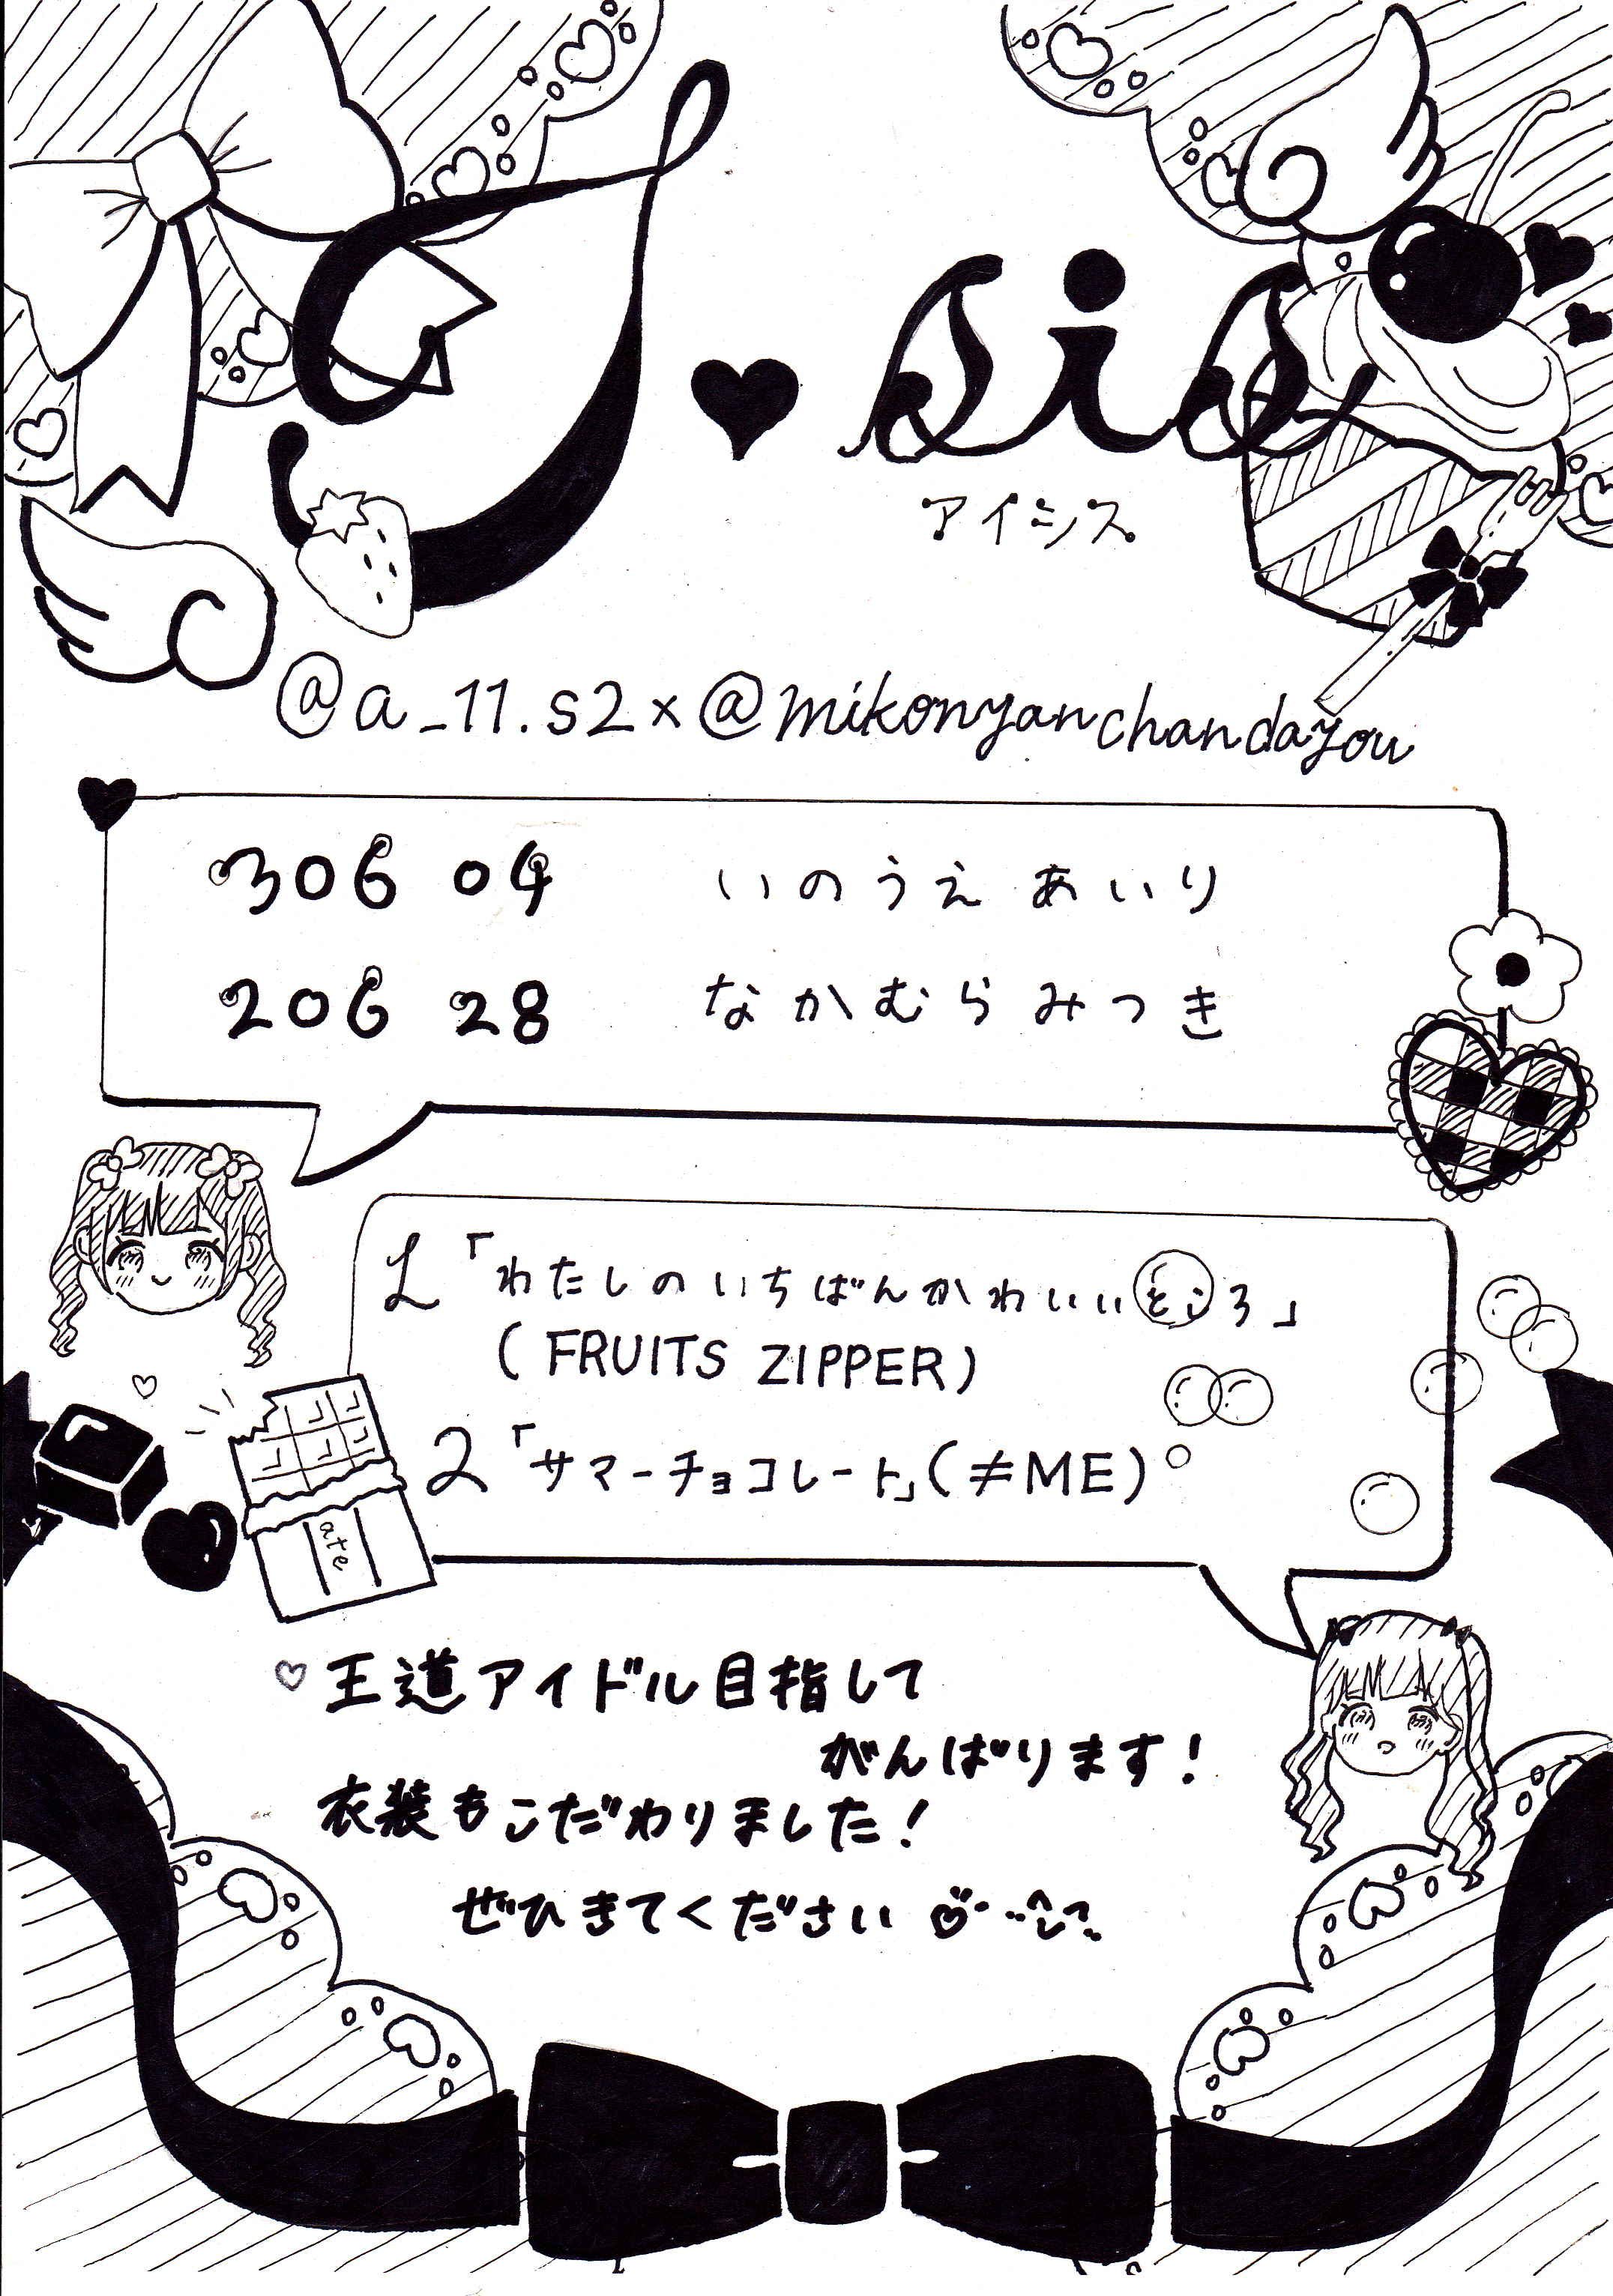 I♥sis
アイシス
@a_11.s2×@mikonyanchandayou
306 04 いのうえ あいり
206 28 なかむらみつき
1「わたしのいちばんかわいいところ」
(FRUITS ZIPPER)
2「サマーチョコレート」(≠ME)
ate
♡王道アイドル目指して
がんばります!
衣装もこだわりました!
ぜひきてください